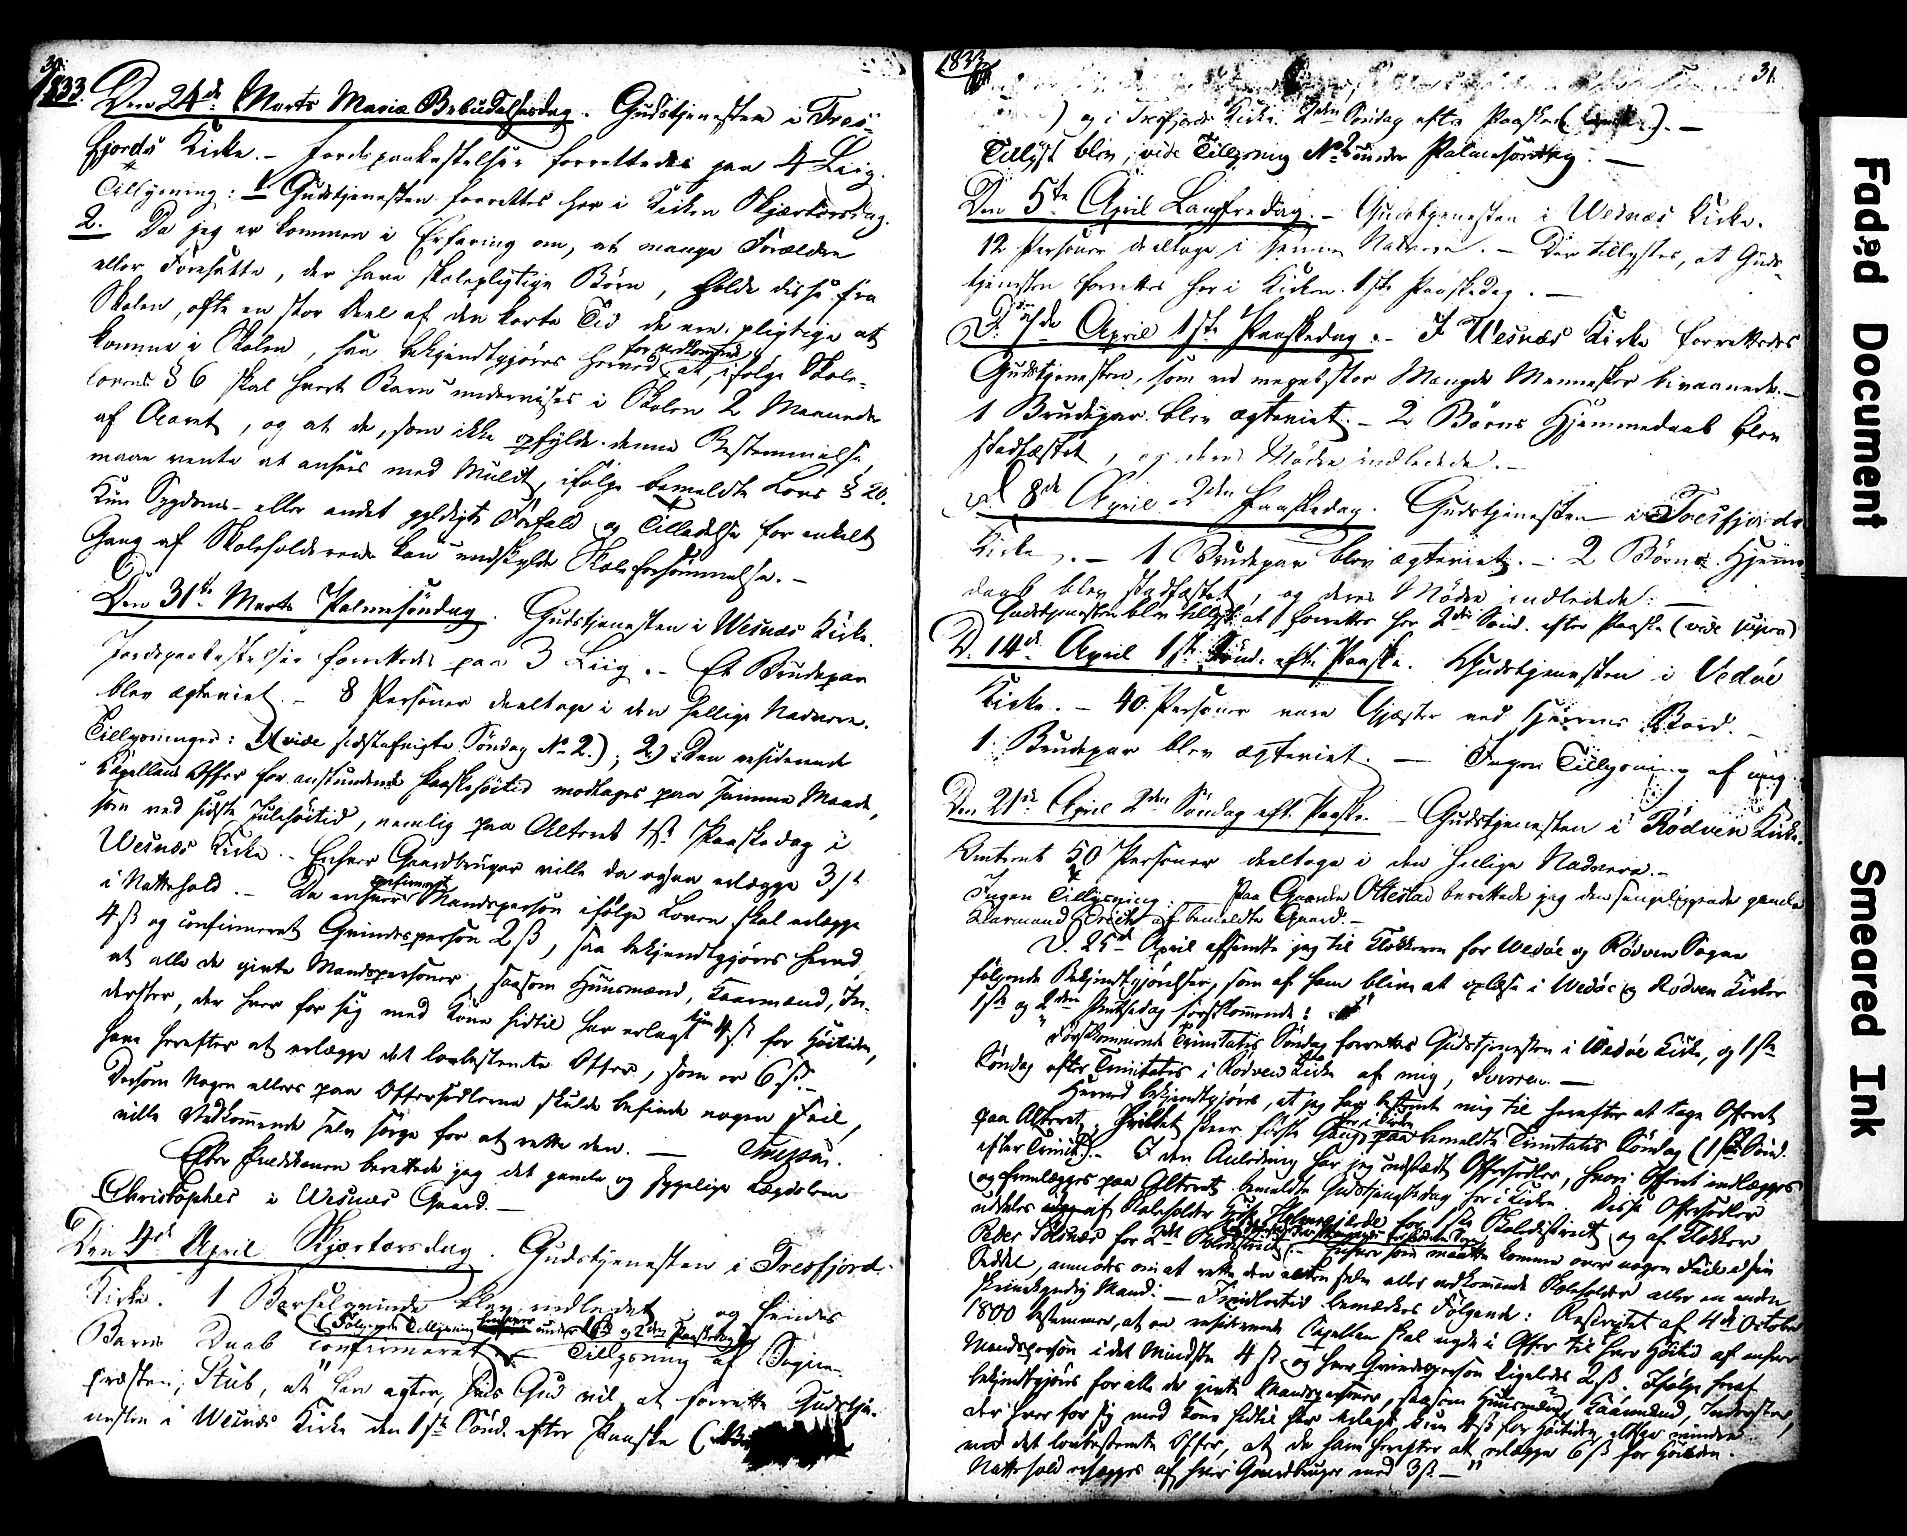 30.
1833. Den 24de Marts Mariæ Bebudelsesdag. Gudstjenesten i Tres-
fjords Kirke. – Jordspaakastelser forrettedes paa 4 Liig.
Tillysning: 1 Gudstjenesten forrettes her i Kirken Skjærtorsdag.
2. Da jeg er kommen i Erfaring om, at mange Forældre
eller Foresatte, der have skolepligtige Børn, holde disse fra
Skolen, ofte en stor Deel af den korte Tid de ere pligtige at
komme i Skolen, saa bekjendtgjøres herved for vedkommende, at, ifølge Skole-
lovens § 6 skal hvert Barn undervises i Skolen 2 Maaneder
af Aaret, og at de, som ikke opfylde denne Bestemmelse,
maae vente at ansees med Mulct, ifølge bemeldte Lovs § 20.
Kun Sygdoms- eller andet gyldigt Forfald og Tilladelse for enkelt
Gang af Skoleholderne kan undskylde Skoleforsømmelse. –
Den 31te Marts Palmesøndag. Gudstjenesten i Wesnæs Kirke.
Jordspaakastelser forrettedes paa 3 Liig. – Et Brudepar
blev ægteviet. – 8 Personer deeltoge i den hellige Nadvere.
Tillysninger: 1) (vide sidstafvigte Søndag No 2.); 2) Den residerende
Capellans Offer for anstundende Paaskehøitid modtages paa samme Maade,
som ved sidste Julehøitid, nemlig paa Alteret 1ste Paaskedag i
Wesnæs Kirke. – Enhver Gaardbruger ville da ogsaa erlægge 3 ß
i Nattehold. – Da enhver confirmeret Mandsperson ifølge Loven skal erlægge
4 ß og confirmeret Qvindesperson 2 ß, saa bekjendtgjøres herved,
at alle de givte Mandspersoner, saasom Huusmænd, Kaarmænd, In-
derster, der hver for sig med Kone hidtil har erlagt kun 4 ß for Høitiden,
have herefter at erlægge det lovbestemte Offer, som er 6 ß. –
Dersom Nogen ellers paa Offersedlerne skulde befinde nogen Feil,
ville Vedkommende selv sørge for at rette den. –
Efter Prædikenen berettede jeg det gamle og sygelige Lægdslem
Christopher i Wesnæs Gaard. –
Den 4de April Skjærtorsdag. Gudstjenesten i Tresfjord-
Kirke. 1 Barselqvinde blev indledet og hendes
(Følgende Tillysning under 1ste og 2den Paaskedag)
Barns Daab confirmeret – Tillysning af Sogne-
præsten, Stub, at "han agter, hvis Gud vil, at forrette Gudstje-
nesten i Wesnæs Kirke den 1ste Sønd. efter Paaske (
1833
31.
) og i Tresfjords Kirke 2den Søndag efter Paaske ( ). –
Tillyst blev, vide Tillysning No 2 under Palmesøndag. –
Den 5te April Langfredag. – Gudstjenesten i Wesnæs Kirke.
12 Personer deeltoge i Nadvere. – Der tillystes, at Guds-
tjenesten forrettes her i Kirken 1ste Paaskedag. –
D. 7de April 1ste Paaskedag. – I Wesnæs Kirke forrettedes
Gudstjenesten, som en meget stor Mængde Mennesker bivaanede. –
1 Brudepar blev ægteviet. – 2 Børns Hjemmedaab blev
stadfæstet, og deres Mødre indledede. –
D. 8de April 2den Paaskedag. Gudstjenesten i Tresfjords
Kirke. – 1 Brudepar blev ægteviet. – 2 Børns Hjemme-
daab blev stadfæstet, og deres Mødre indledede. –
Gudstjenesten blev tillyst at forrettes her 2den Sønd. efter Paaske (vide supra)
D. 14de April 1ste Sønd. efter Paaske. Gudstjenesten i Vedøe
Kirke. – 40 Personer vare Gjæster ved Herrens Bord. –
1 Brudepar blev ægteviet. – Ingen Tillysning af mig.
Den 21de April 2den Søndag eft. Paaske – Gudstjenesten i Rødven Kirke.
Omtrent 50 Personer deeltoge i den hellige Nadvere. –
Ingen Tillysning. Paa Gaarden Ottestad berettede jeg den sengeliggende gamle
Kaarmand af bemeldte Gaard. –
D. 25de April afsendte jeg til Klokkeren for Wedøe og Rødven Sogne
følgende Bekjendtgjørelser, som af ham blive at oplæse i Wedøe og Rødven Kirker
1ste og 2den Pintsedag førstkommende:
"Førstkommende Trinitatis Søndag forrettes Gudstjenesten i Wedøe Kirke, og 1ste
Søndag efter Trinitatis i Rødven Kirke af mig, –
Herved bekjendtgjøres, at jeg har bestemt mig til herefter at tage Offeret
paa Alteret, hvilket skeer første Gang her i Kirken paa bemeldte Trinitatis Søndag (1ste Sønd.
efter Trinit.). – I den Anledning har jeg udstædt Offersedler, hvori Offeret indlægges
og fremlægges paa Alteret bemeldte Gudstjenestedag her i Kirken. Disse Offersedler
uddeles af Skoleholder for 1ste Skoledistrict og af Klokker
Peder Solsnæs for 2det Skoledistrict. – Enhver som maatte komme over nogen Feil i sin
Seddel, anmodes om at rette den enten selv eller vedkommende Skoleholder eller en anden
skrivekyndig Mand. – Imidlertid bemærkes Følgende: Rescriptet af 4de October
1800 bestemmer, at en residerende Capellan skal nyde i Offer til hver Høitid af enhver
Mandsperson i det Mindste 4 ß og hver Qvindesperson ligeledes 2 ß. Ifølge heraf
bekjendtgjøres for alle de givte Mandspersoner, saasom Huusmænd, Kaarmænd, Inderster,
der hver for sig med Kone hidtil har erlagt kun 4 ß for Høitiden, eller mindre
end det lovbestemte Offer, at de have herefter at erlægge 6 ß for Høitiden.
Nattehold erlægges af hver Gaardbruger med 3 ß – "
Faded Document
Smeared Ink